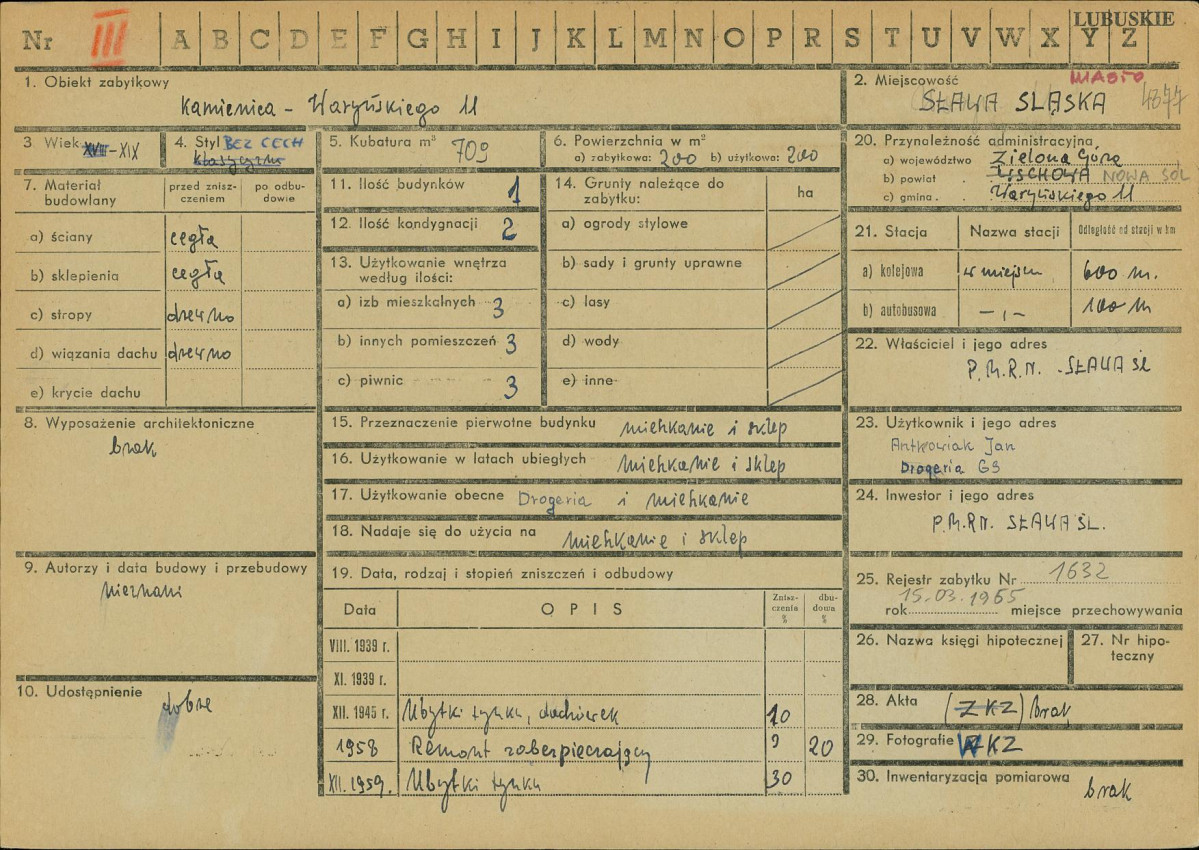 LUBUSKIE
Nr III A B C D E F G H I J K L M N O P R S T U V W X Y Z
1. Obiekt zabytkowy
Kamienica - Waryńskiego 11
2. Miejscowość
MIASTO
SŁAWA SLĄSKA 4877
3 Wiek XVIII-XIX
4. Styl BEZ CECH
klasyczno
5. Kubatura m³ 709
6. Powierzchnia w m²
a) zabytkowa: 200 b) użytkowa: 200
7. Materiał budowlany
przed zniszczeniem
po odbudowie
a) ściany cegła
b) sklepienia cegła
c) stropy drewno
d) wiązania dachu drewno
e) krycie dachu
8. Wyposażenie architektoniczne
brak
9. Autorzy i data budowy i przebudowy
nieznani
10. Udostępnienie
dobre
11. Ilość budynków 1
12. Ilość kondygnacji 2
13. Użytkowanie wnętrza
według ilości:
a) izb mieszkalnych 3
b) innych pomieszczeń 3
c) piwnic 3
14. Grunty należące do
zabytku:
ha
a) ogrody stylowe
b) sady i grunty uprawne
c) lasy
d) wody
e) inne
15. Przeznaczenie pierwotne budynku mieszkanie i sklep
16. Użytkowanie w latach ubiegłych mieszkanie i sklep
17. Użytkowanie obecne Drogeria i mieszkanie
18. Nadaje się do użycia na mieszkanie i sklep
19. Data, rodzaj i stopień zniszczeń i odbudowy
Data OPIS Zniszczenia % dbudowa %
VIII. 1939 r.
XI. 1939 r.
XII. 1945 r. Ubytki tynku, dachówek 10
1958 Remont zabezpieczający ? 20
XII. 1959. Ubytki tynku 30
20. Przynależność administracyjna
a) województwo Zielona Góra
b) powiat WSCHOWA NOWA SÓL
c) gmina Waryńskiego 11
21. Stacja Nazwa stacji Odległość od stacji w km
a) kolejowa w miejscu 600 m.
b) autobusowa -,- 100 m
22. Właściciel i jego adres
P.M.R.N. - SŁAWA ŚL
23. Użytkownik i jego adres
Antkowiak Jan
Drogeria GS
24. Inwestor i jego adres
P.M.R.N. SŁAWA ŚL.
25. Rejestr zabytku Nr 1632
15.03.1965
rok miejsce przechowywania
26. Nazwa księgi hipotecznej
27. Nr hipoteczny
28. Akta (ZKZ) brak
29. Fotografie WKZ
30. Inwentaryzacja pomiarowa
brak